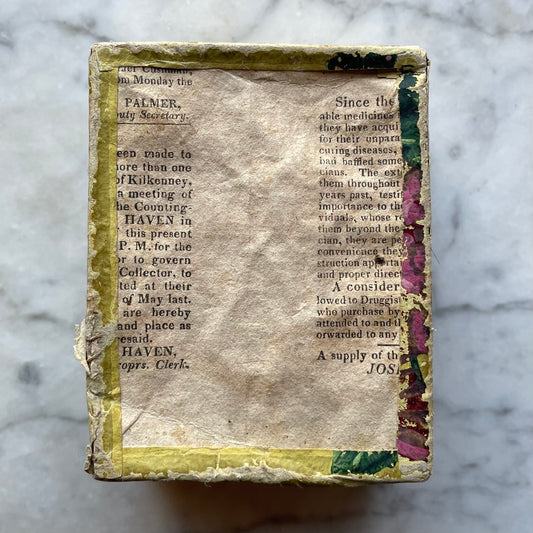 om Monday the
PALMER,
uty Secretary.
een made to
ore than one
of Kilkenney,
a meeting of
he Counting-
HAVEN in
this present
P. M. for the
or to govern
Collector, to
ted at their
of May last.
are hereby
and place as
resaid.
HAVEN,
roprs. Clerk.
Since the
able medicines
they have acqui
for their unpara
curing diseases,
had baffled some
cians. The ext
them throughout
years past, testif
importance to th
viduals, whose r
them beyond the
cian, they are pe
convenience they
struction apperta
and proper direc
A consider
lowed to Druggis
who purchase by
attended to and
orwarded to any
A supply of th
JOS